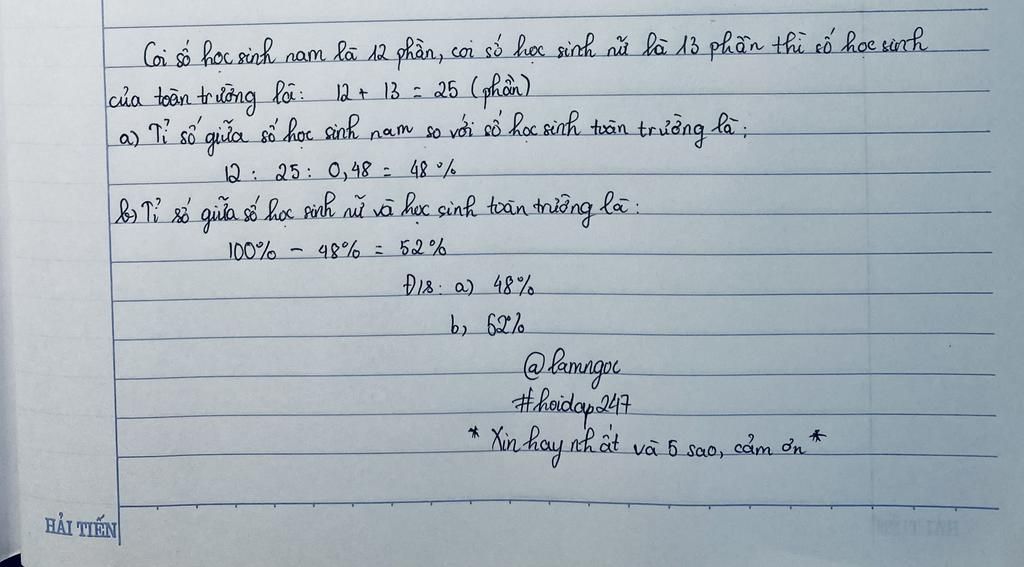 Coi số học sinh nam là 12 phần, coi số học sinh nữ là 13 phần thì số học sinh
của toàn trường là: 12 + 13 = 25 (phần)
a) Tỉ số giữa số học sinh nam so với số học sinh toàn trường là:
12 : 25 : 0,48 = 48%
b) Tỉ số giữa số học sinh nữ và học sinh toàn trường là:
100% - 48% = 52%
Đ/s: a) 48%
b, 62%
@lamngoc
#hoidap247
* Xin hay nhất và 5 sao, cảm ơn *
HẢI TIẾN